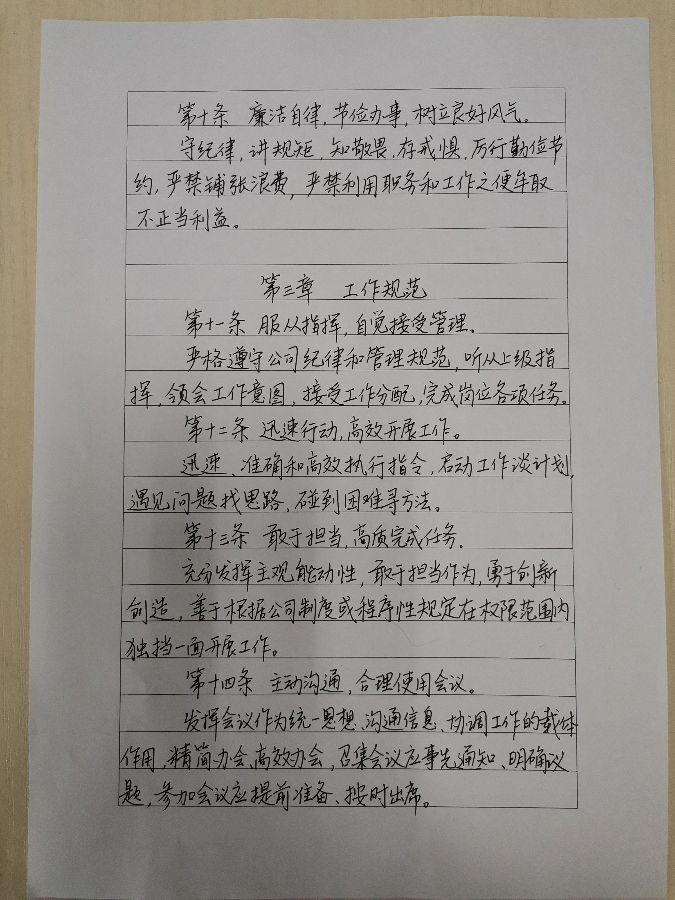 第十条 廉洁自律,节俭办事,树立良好风气。
守纪律,讲规矩,知敬畏,存戒惧,厉行勤俭节
约,严禁铺张浪费,严禁利用职务和工作之便牟取
不正当利益。
第三章 工作规范
第十一条 服从指挥,自觉接受管理。
严格遵守公司纪律和管理规范,听从上级指
挥,领会工作意图,接受工作分配,完成岗位各项任务。
第十二条 迅速行动,高效开展工作。
迅速、准确和高效执行指令,启动工作谈计划,
遇见问题找思路,碰到困难寻方法。
第十三条 敢于担当,高质完成任务。
充分发挥主观能动性,敢于担当作为,勇于创新
创造,善于根据公司制度或程序性规定在权限范围内
独挡一面开展工作。
第十四条 主动沟通,合理使用会议。
发挥会议作为统一思想、沟通信息、协调工作的载体
作用,精简办会、高效办会,召集会议应事先通知、明确议
题,参加会议应提前准备、按时出席。